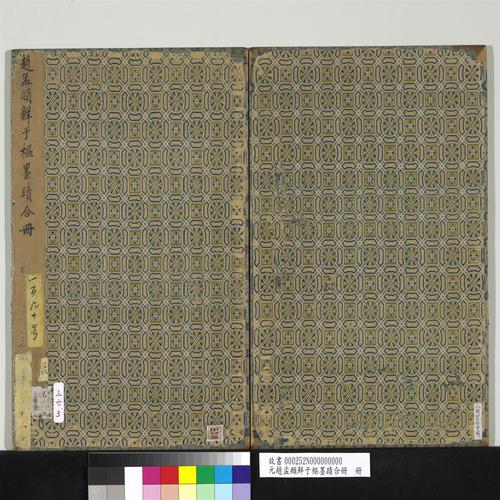 趙孟頫鮮于樞墨蹟合冊
一百九十号
三七3
故書 000252N000000000
元趙孟頫鮮于樞墨蹟合冊 冊